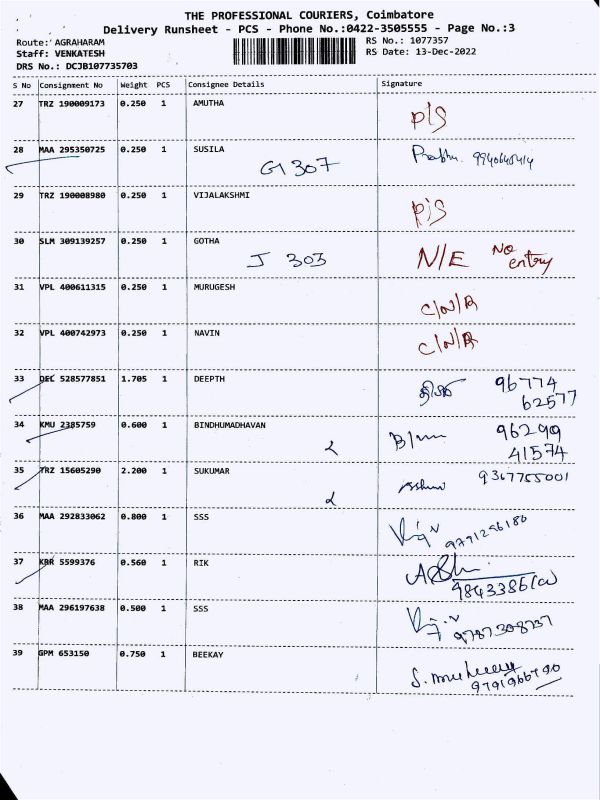 THE PROFESSIONAL COURIERS, Coimbatore
Delivery Runsheet - PCS - Phone No.:0422-3505555 - Page No.:3
Route: AGRAHARAM
RS No.: 1077357
Staff: VENKATESH
RS Date: 13-Dec-2022
DRS No.: DCJB107735703
S No Consignment No Weight PCS Consignee Details Signature
27 TRZ 190009173 0.250 1 AMUTHA
P/S
28 MAA 295350725 0.250 1 SUSILA
G1 307
29 TRZ 190008980 0.250 1 VIJALAKSHMI
P/S
30 SLM 309139257 0.250 1 GOTHA
J 303 N/E No entry
31 VPL 400611315 0.250 1 MURUGESH
C/N/R
32 VPL 400742973 0.250 1 NAVIN
C/N/R
33 DEL 528577851 1.705 1 DEEPTH
96774
62577
34 KMU 2385759 0.600 1 BINDHUMADHAVAN
96299
41574
35 TRZ 15605290 2.200 1 SUKUMAR
9367755001
36 MAA 292833062 0.800 1 SSS
9791296180
37 KRR 5599376 0.560 1 RIK
38 MAA 296197638 0.500 1 SSS
9787308737
39 GPM 653150 0.750 1 BEEKAY
9791966790